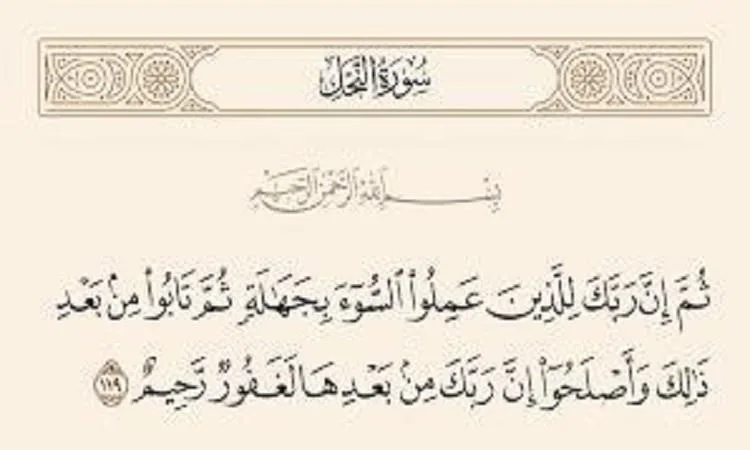 سُورَةُ النَّحْلِ
بِسْمِ اللَّهِ الرَّحْمَٰنِ الرَّحِيمِ
ثُمَّ إِنَّ رَبَّكَ لِلَّذِينَ عَمِلُوا۟ ٱلسُّوٓءَ بِجَهَٰلَةٍ ثُمَّ تَابُوا۟ مِنۢ بَعْدِ
ذَٰلِكَ وَأَصْلَحُوٓا۟ إِنَّ رَبَّكَ مِنۢ بَعْدِهَا لَغَفُورٌ رَّحِيمٌ ١١٩